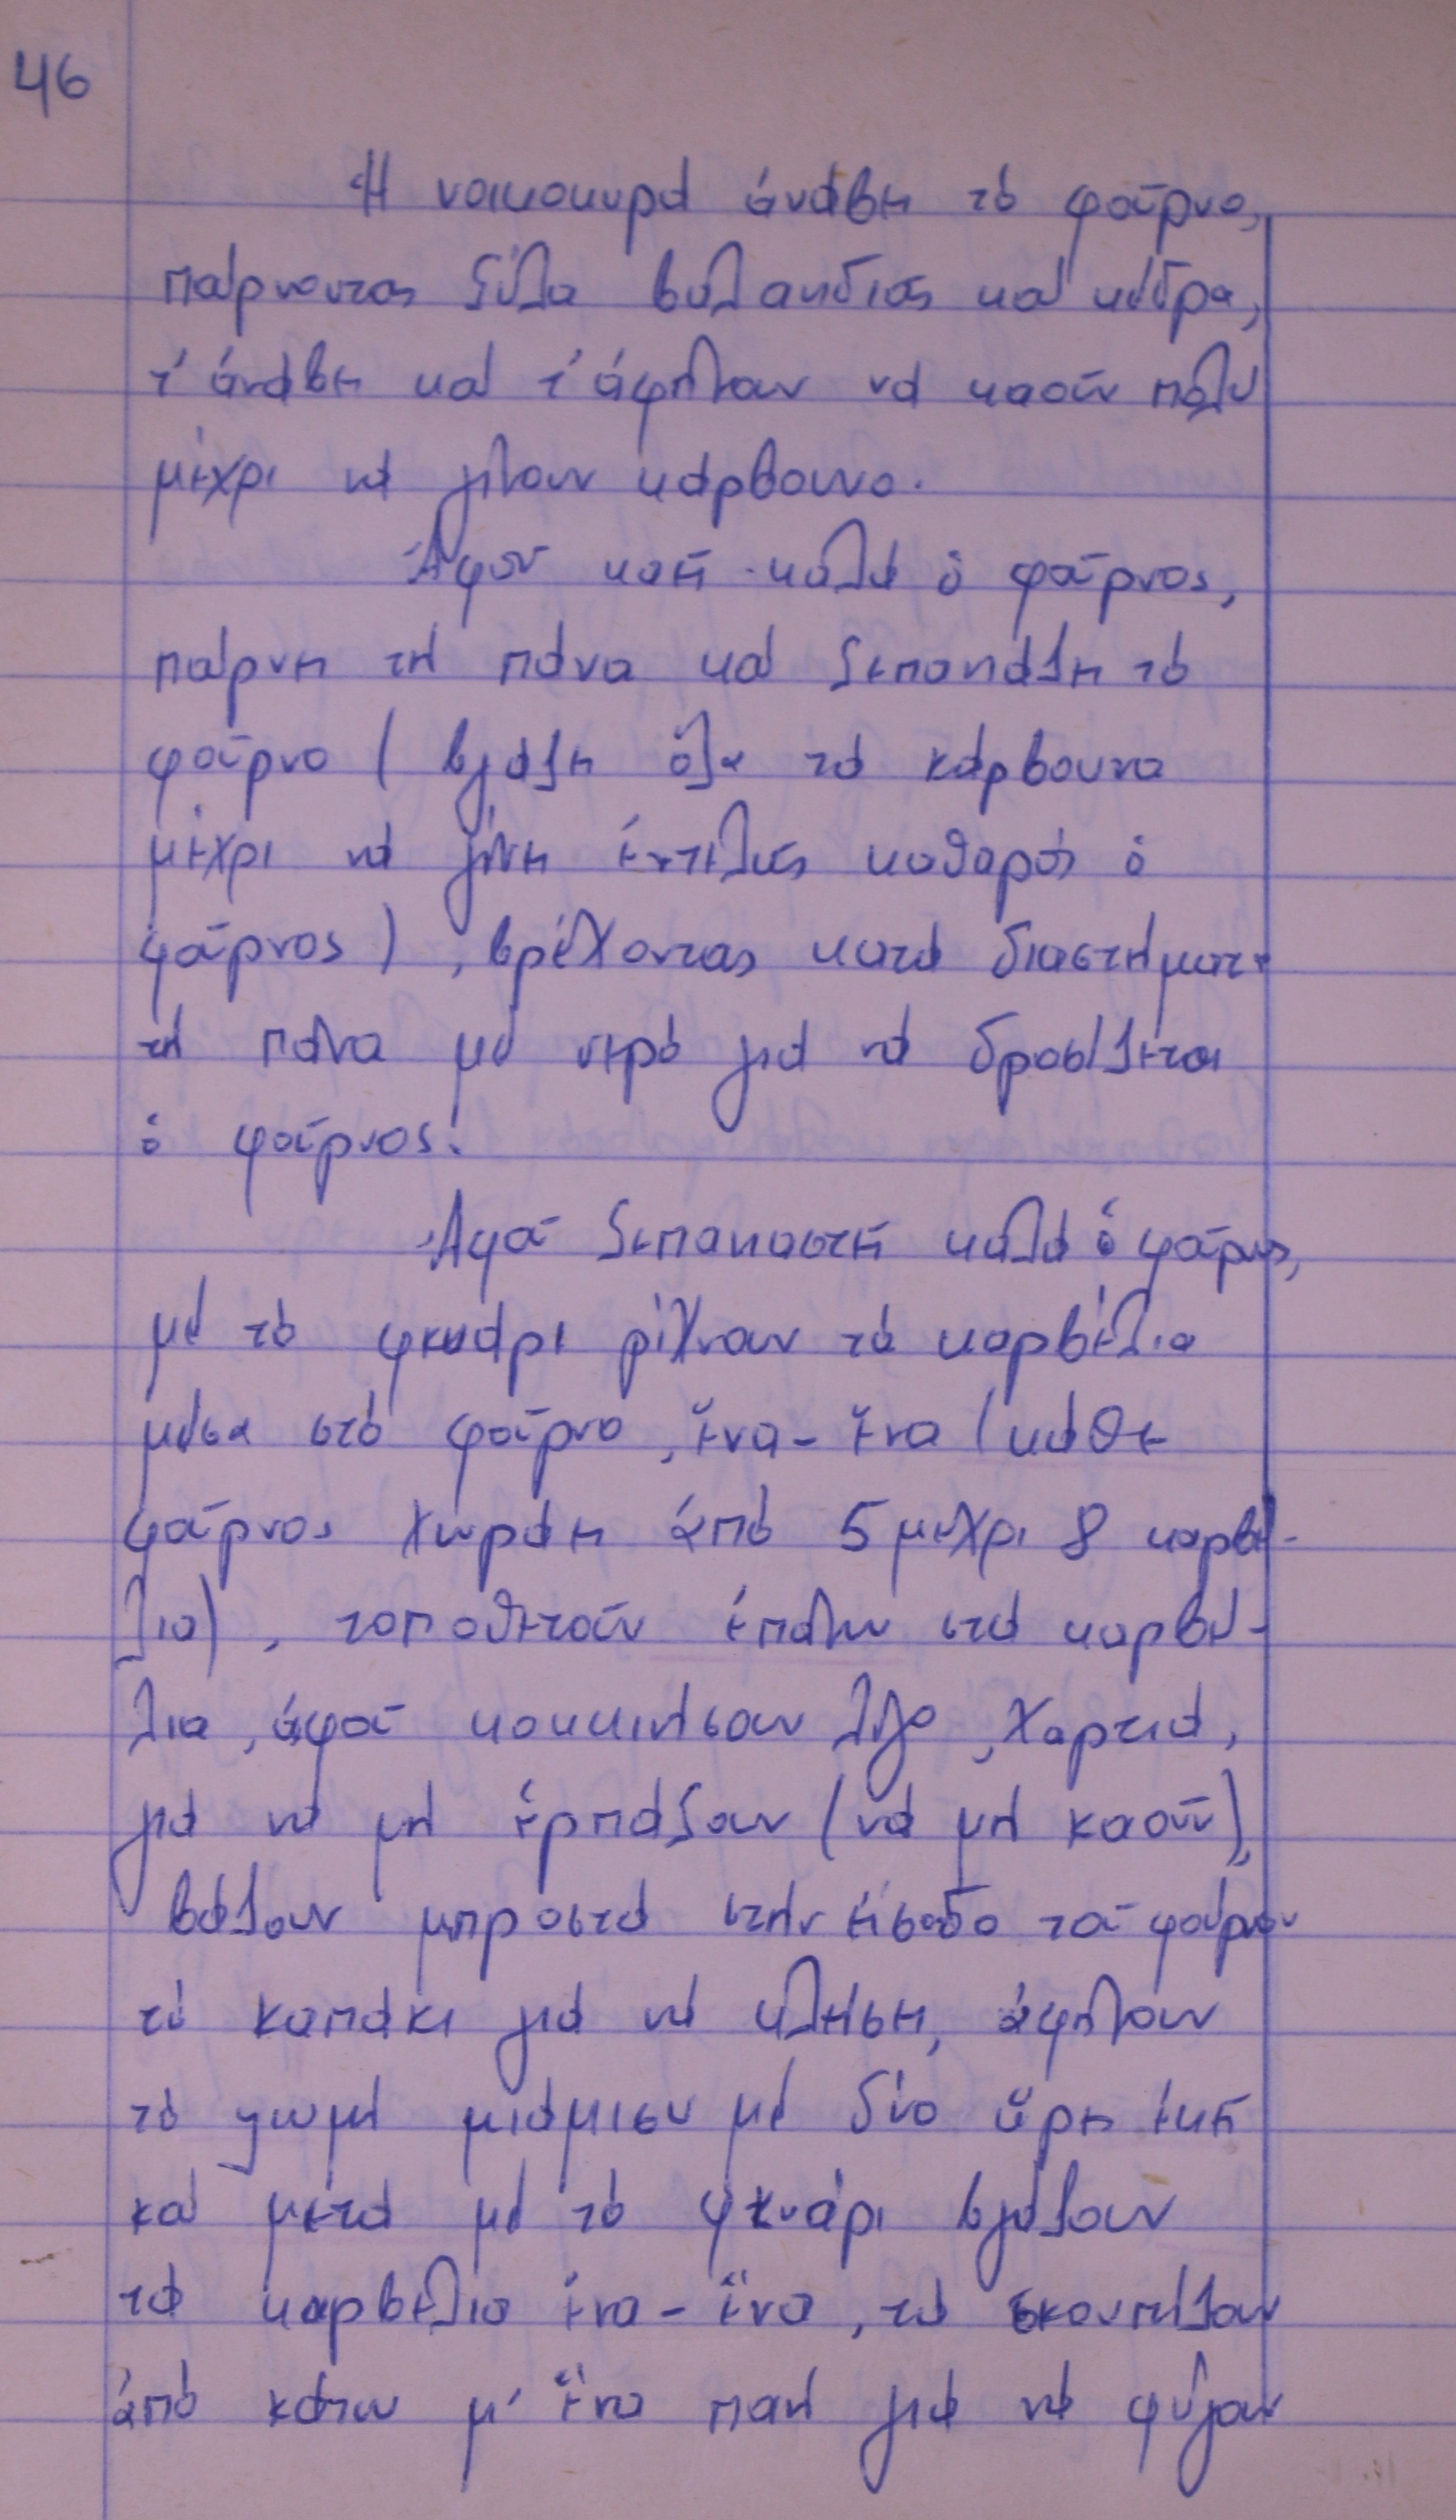 46
Ἡ νοικοκυρά ἀνάβει τό φοῦρνο,
παίρνοντας ξύλα βαλανιδιᾶς καί κέδρα,
τ' ἀνάβει καί τ' ἀφήνουν νά καοῦν πολύ
μέχρι νά γίνουν κάρβουνο.
Ἀφοῦ καεῖ καλά ὁ φοῦρνος,
παίρνει τή πάνα καί ξεπανάζει τό
φοῦρνο (βγάζει ὅλα τά κάρβουνα
μέχρι νά γίνει ἐντελῶς καθαρός ὁ
φοῦρνος), βρέχοντας κατά διαστήματα
τή πάνα μέ νερό γιά νά δροσίζεται
ὁ φοῦρνος.
Ἀφοῦ ξεπαναστεῖ καλά ὁ φοῦρνος,
μέ τό φκυάρι ρίχνουν τά καρβέλια
μέσα στό φοῦρνο, ἕνα-ἕνα (κάθε
φοῦρνος χωράει ἀπό 5 μέχρι 8 καρβέ-
λια), τοποθετοῦν ἐπάνω στά καρβέ-
λια, ἀφοῦ κοκκινήσουν λίγο, χαρτιά,
γιά νά μή ἁρπάξουν (νά μή καοῦν),
βάζουν μπροστά στήν εἴσοδο τοῦ φούρνου
τό καπάκι γιά νά κλείσει, ἀφήνουν
τό ψωμί μιάμισυ μέ δύο ὧρες ἐκεῖ
καί μετά μέ τό φκυάρι βγάζουν
τά καρβέλια ἕνα-ἕνα, τά σκουπίζουν
ἀπό κάτω μ' ἕνα πανί γιά νά φύγουν